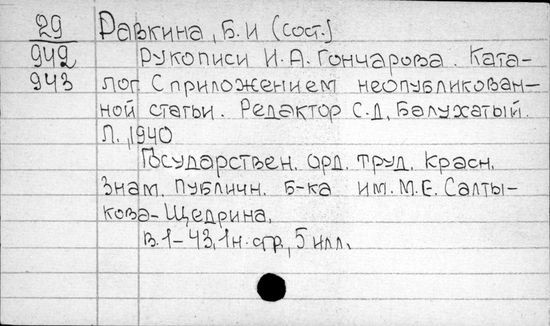 29 Равкина, Б. И (сост.)
942 Рукописи И. А. Гончарова. Ката-
943 лог С приложением неопубликован-
ной статьи. Редактор С. Д, Балухатый.
Л., 1940
Государствен. орд. труд. Красн.
Знам. Публичн. б-ка им. М. Е. Салты-
кова-Щедрина.
в. 1-43, 1 н. стр, 5 илл.